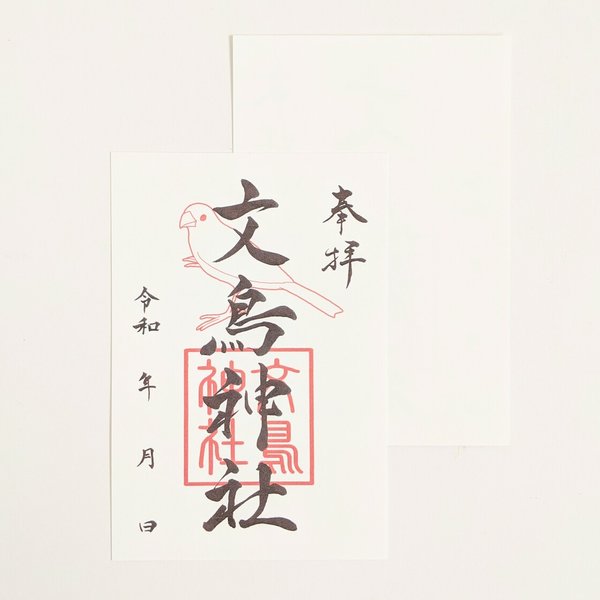 奉拝
文鳥神社
文鳥
神社
令和 年 月 日